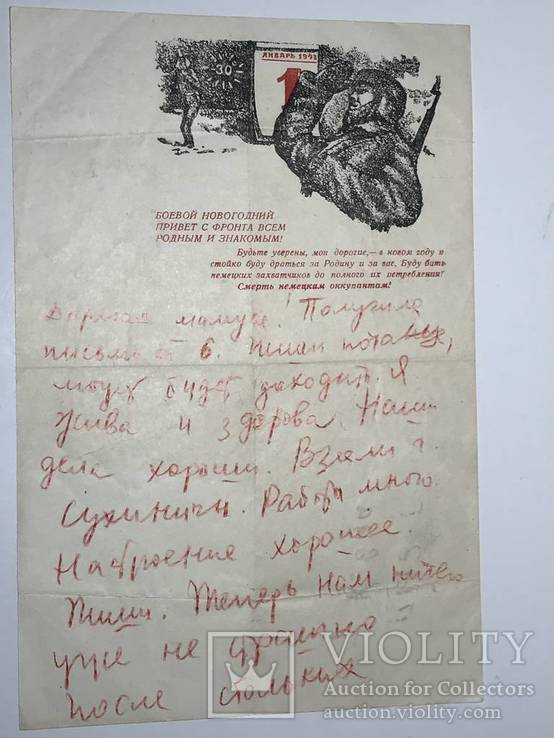 ЯНВАРЬ 1942
1
30
БОЕВОЙ НОВОГОДНИЙ
ПРИВЕТ С ФРОНТА ВСЕМ
РОДНЫМ И ЗНАКОМЫМ!
Будьте уверены, мои дорогие,— в новом году я
стойко буду драться за Родину и за вас. Буду бить
немецких захватчиков до полного их истребления!
Смерть немецким оккупантам!
Дорогая мамуся! Получила
письмо от 6. Пиши
может будет доходить. Я
жива и здорова. Наши
дела хороши. Взяли г.
Сухиничи. Работы много.
Настроение хорошее.
Пиши. Теперь нам ничего
уже не страшно
после стольких
VIOLITY
Auction for Collectors
auction.violity.com